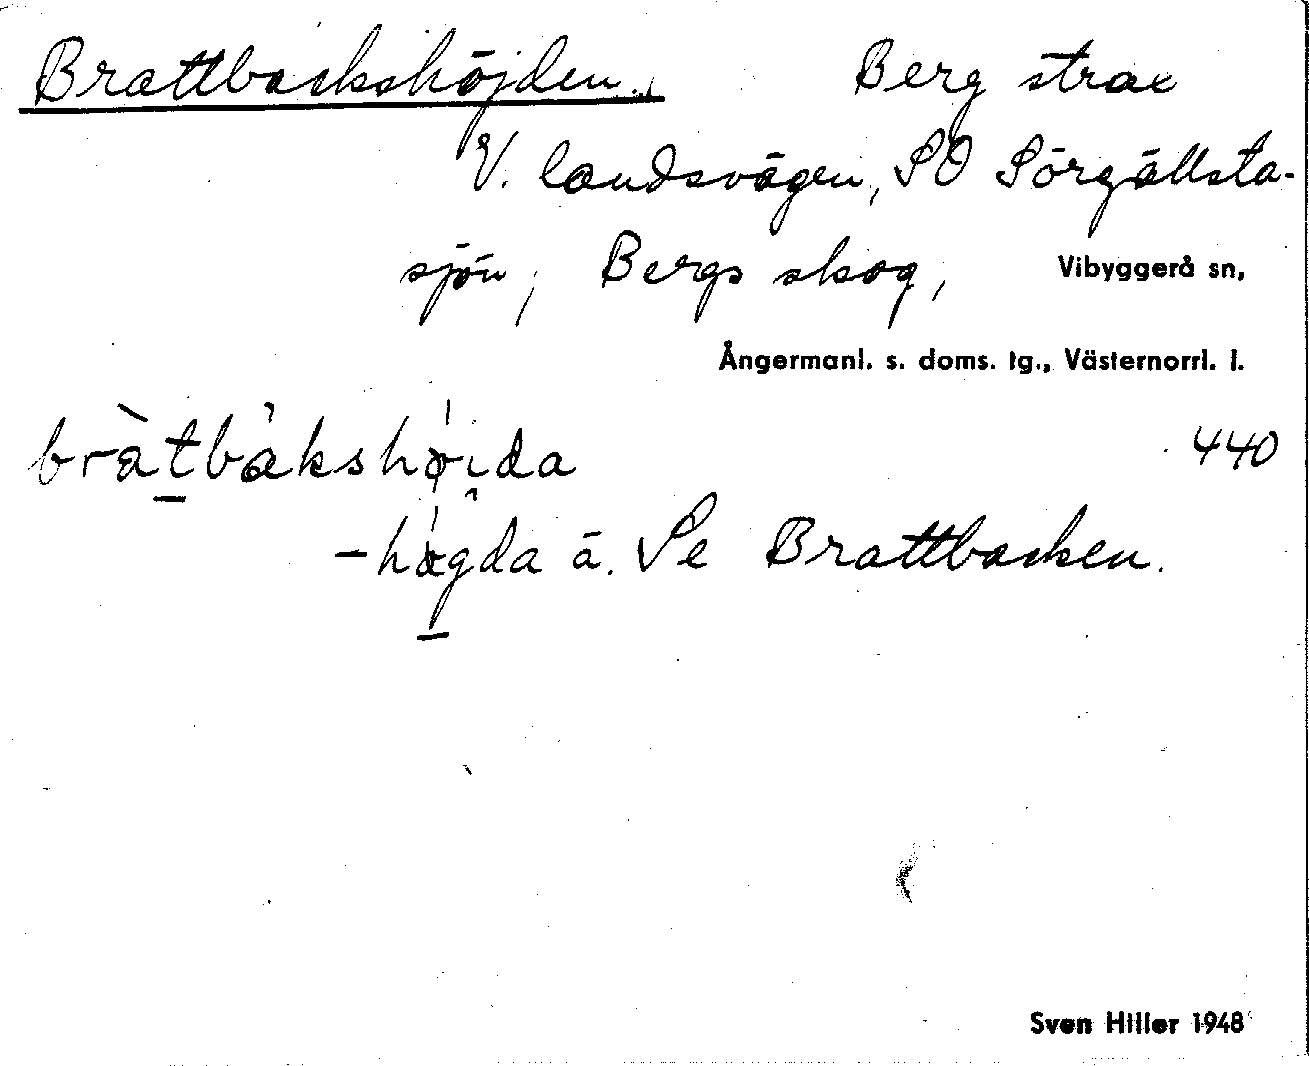 Brattbackshöjden. Berg strax
V. landsvägen, SO Sörgällsta-
sjön, Bergs skog, Vibyggerå sn,
Ångermanl. s. doms. tg., Västernorrl. l.
bràtbàkshø̀i̯da 440
-hø̀gda ä. Se Brattbacken.
Sven Hiller 1948